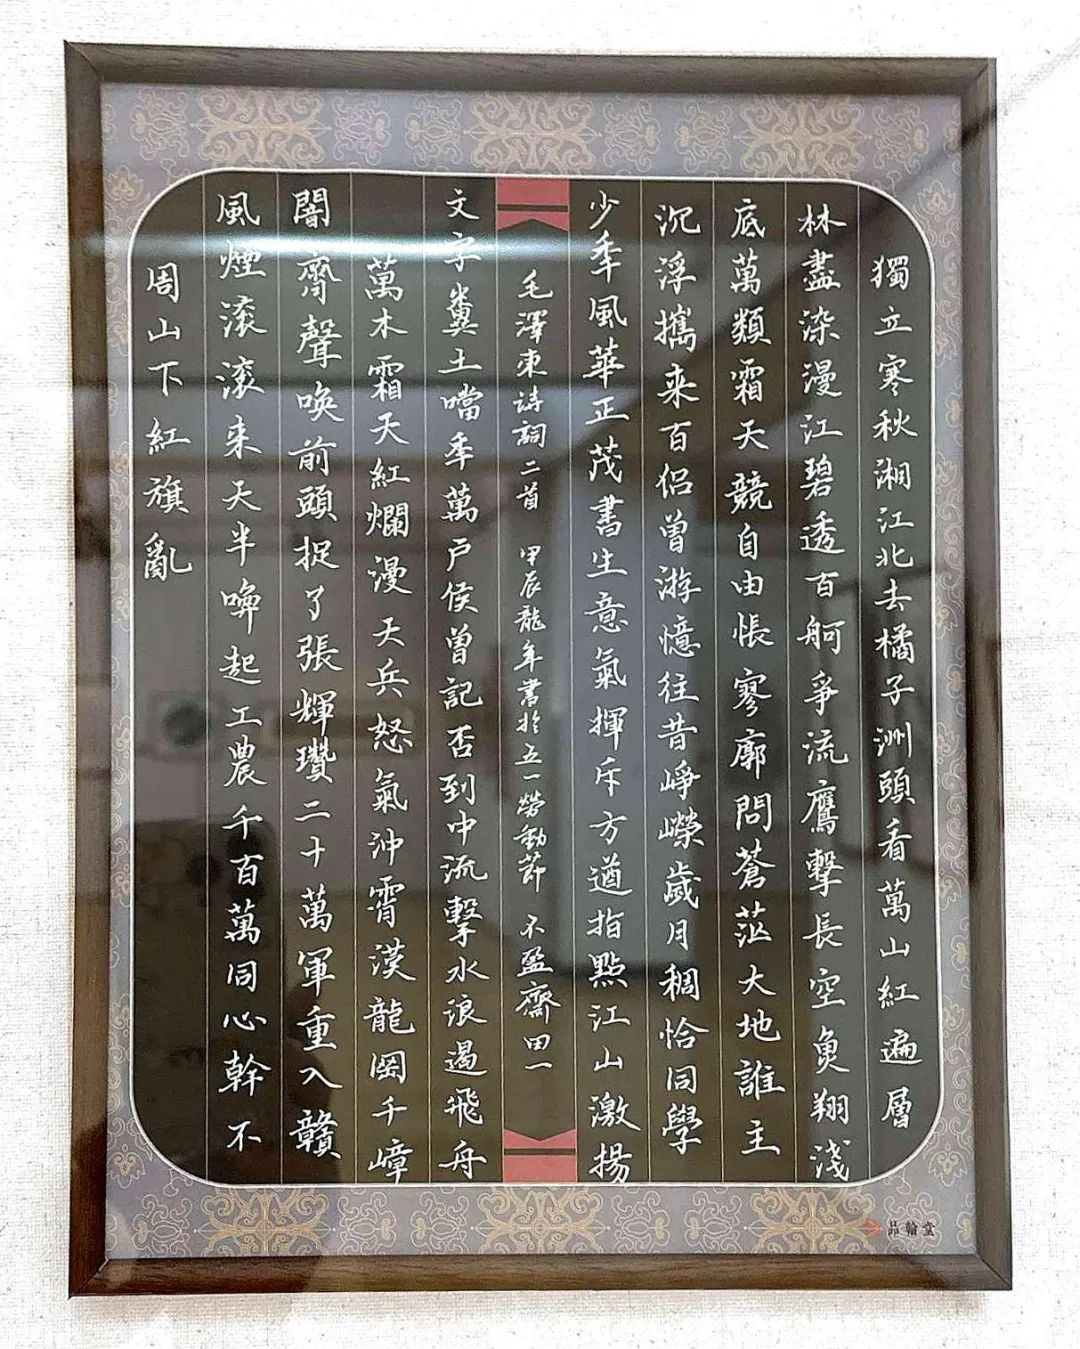 獨立寒秋湘江北去橘子洲頭看萬山紅遍層
林盡染漫江碧透百舸爭流鷹擊長空魚翔淺
底萬類霜天競自由悵寥廓問蒼茫大地誰主
沉浮攜来百侶曾游憶往昔崢嶸歲月稠恰同學
少年風華正茂書生意氣揮斥方遒指點江山激揚
毛澤東詩詞二首 甲辰龍年書於五一勞動節 不盈齋田一
文字糞土噹年萬户侯曾記否到中流擊水浪遏飛舟
萬木霜天紅爛漫天兵怒氣沖霄漢龍岡千嶂
闇齊聲唤前頭捉了張輝瓚二十萬軍重入贛
風煙滚滚来天半唤起工農千百萬同心幹不
周山下紅旗亂
品翰堂